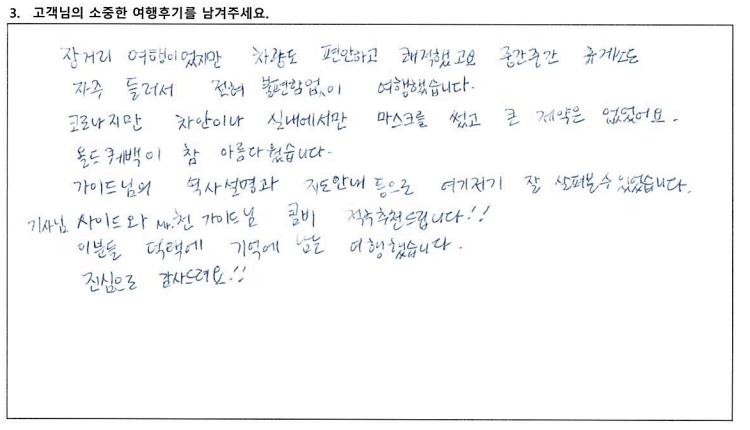 3. 고객님의 소중한 여행후기를 남겨주세요.
장거리 여행이었지만 차량도 편안하고 쾌적했고요 중간중간 휴게소도
자주 들러서 전혀 불편함없이 여행했습니다.
코로나지만 차안이나 실내에서만 마스크를 썼고 큰 제약은 없었어요.
올드퀘백이 참 아름다웠습니다.
가이드님의 역사설명과 지도안내 등으로 여기저기 잘 살펴볼수 있었습니다.
기사님 사이드와 Mr.천 가이드님 콤비 적극추천드립니다!!
이분들 덕택에 기억에 남는 여행했습니다.
진심으로 감사드려요!!